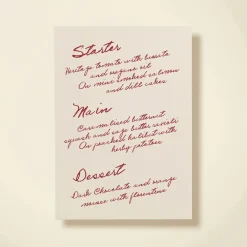 Starter
Heritage tomato with burrata
and oregano oil
Or mini smoked salmon
and dill cakes
Main
Caramelised butternut
squash and sage butter ravioli
Or poached halibut with
herby potatoes
Dessert
Dark Chocolate and orange
mousse with florentine